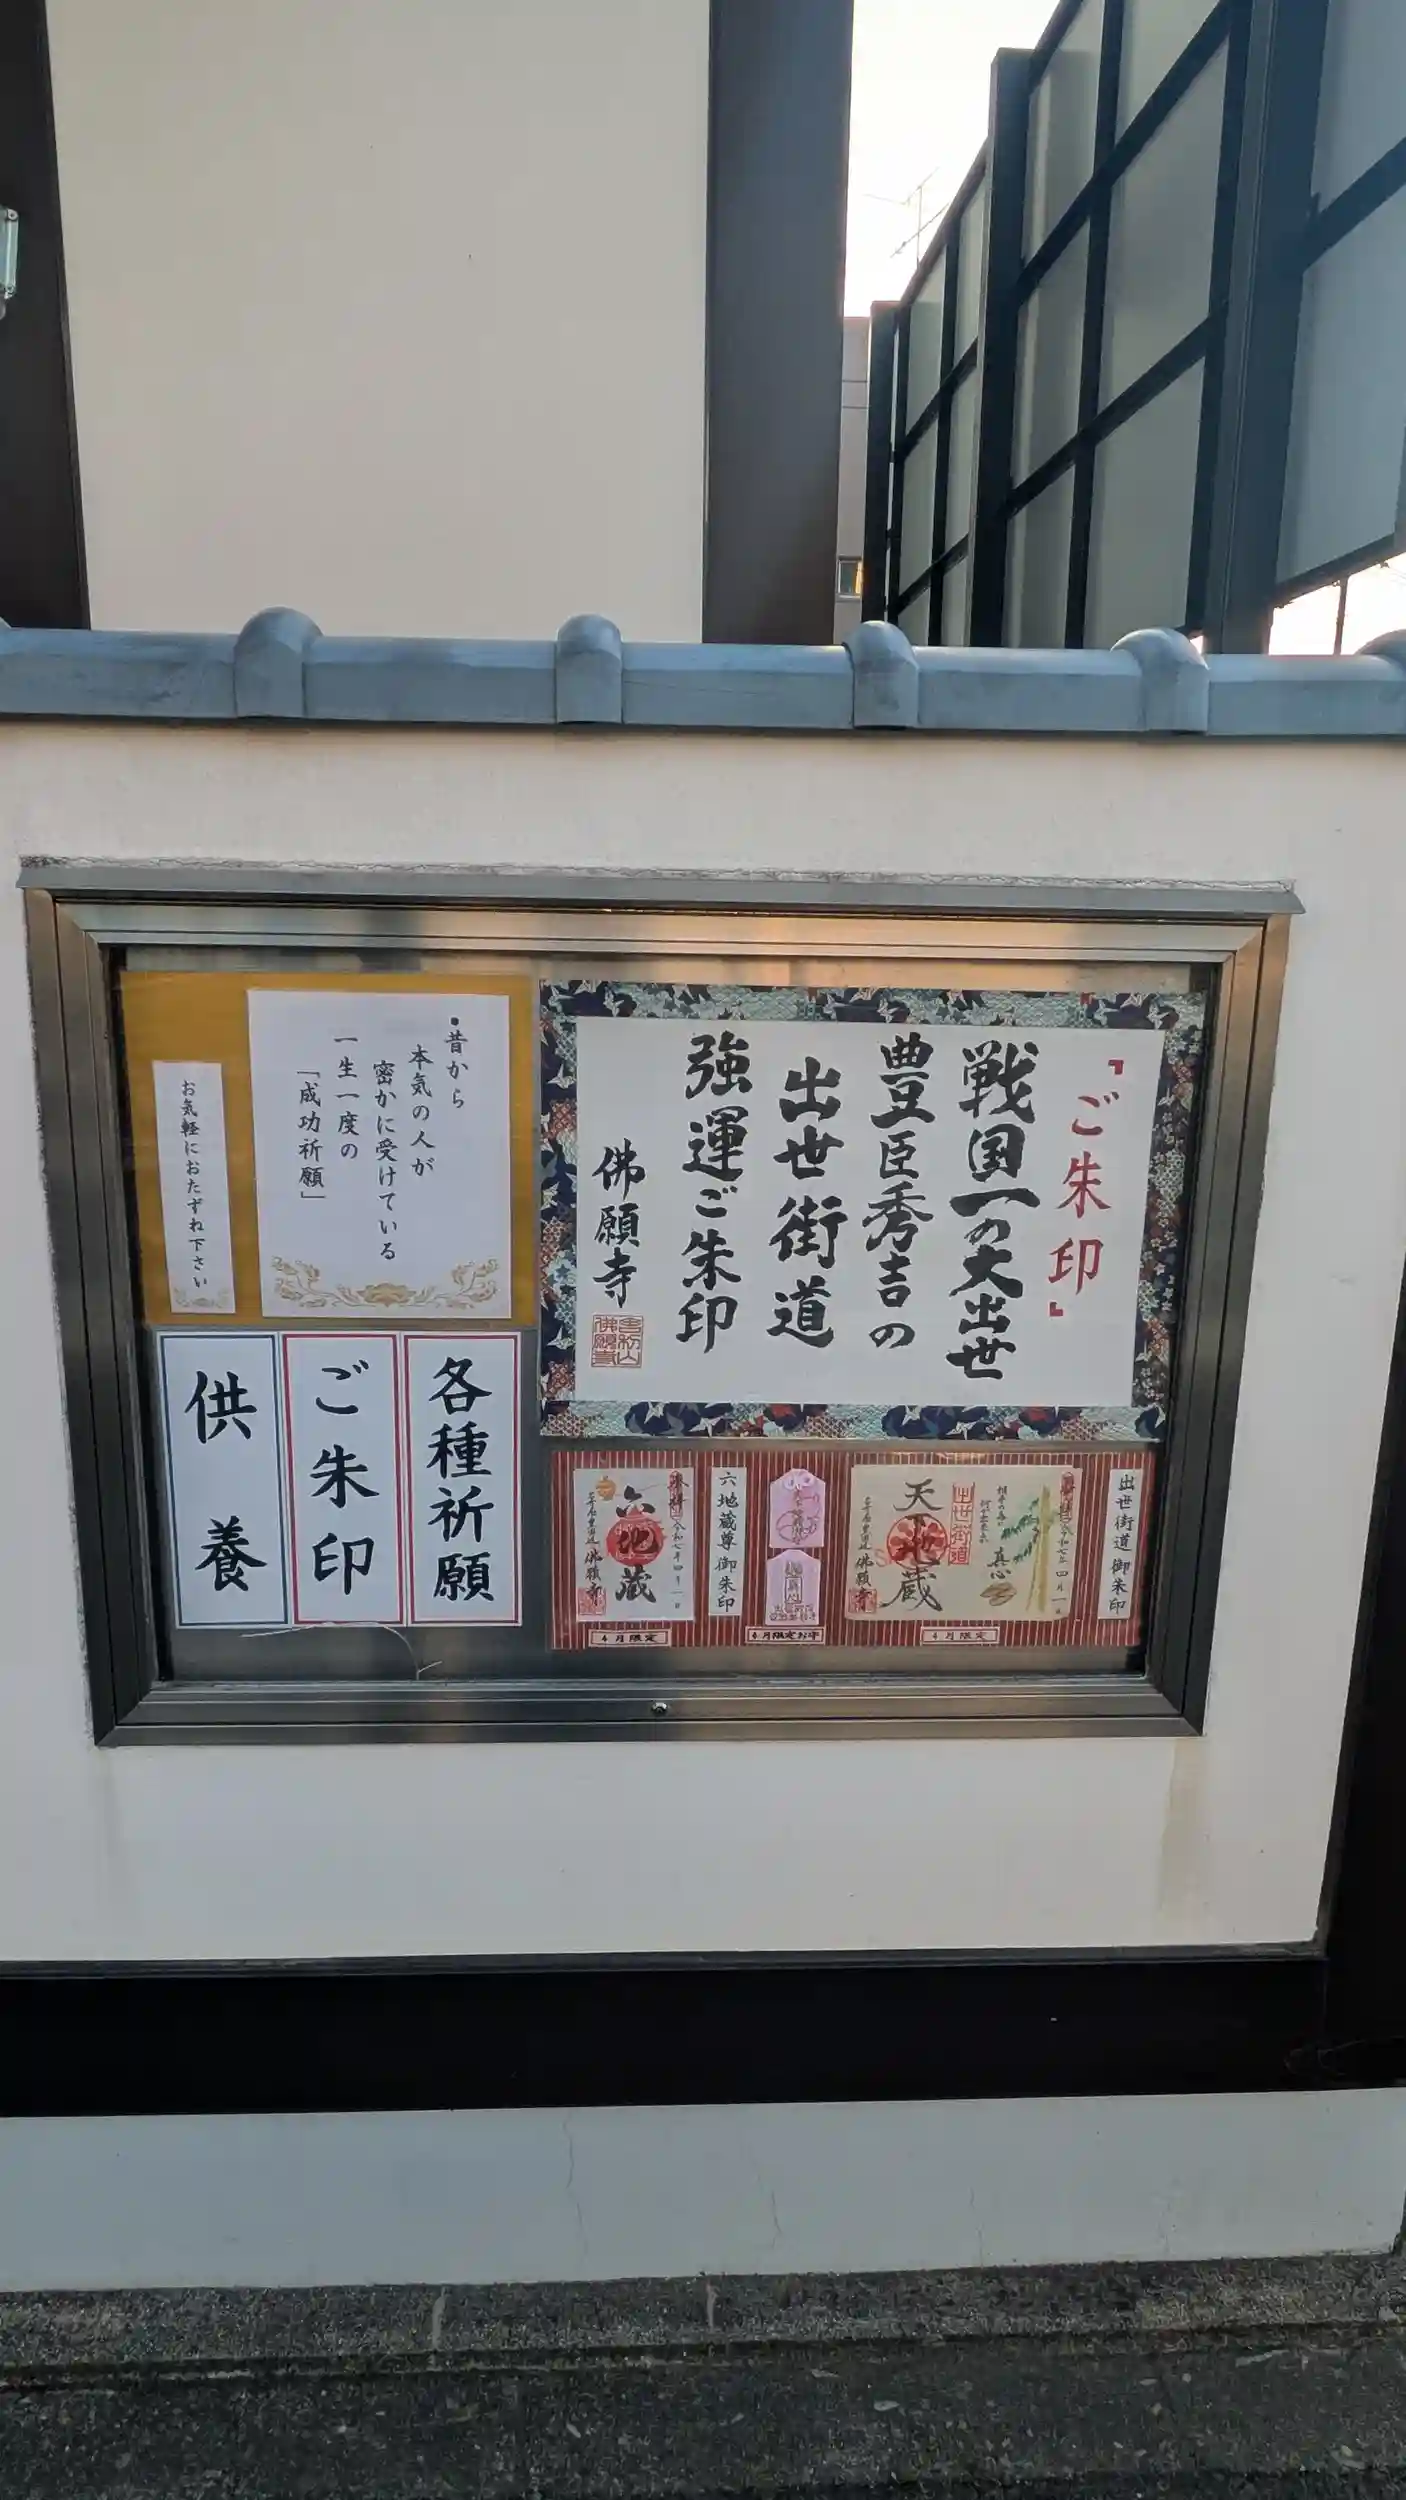 「ご朱印」
戦国一の大出世
豊臣秀吉の
出世街道
強運ご朱印
佛願寺
•昔から
本気の人が
密かに受けている
一生一度の
「成功祈願」
お気軽におたずね下さい
各種祈願
ご朱印
供養
出世街道 御朱印
令和七年 四月一日
真心
出世街道
天地蔵
佛願寺
4月限定
4月限定お守
六地蔵尊 御朱印
令和七年四月一日
六地蔵
佛願寺
4月限定